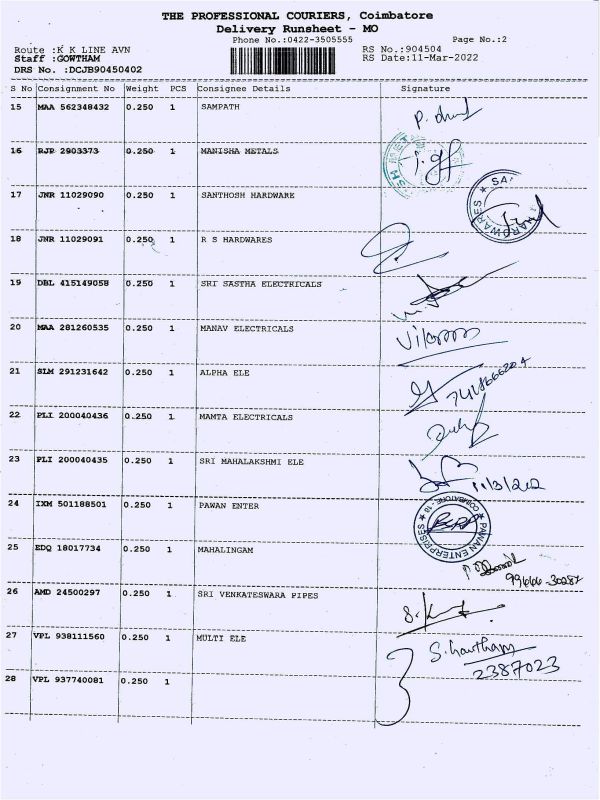 THE PROFESSIONAL COURIERS, Coimbatore
Delivery Runsheet - MO
Phone No.:0422-3505555 Page No.:2
Route :K K LINE AVN RS No.:904504
Staff :GOWTHAM RS Date:11-Mar-2022
DRS No. :DCJB90450402
S No Consignment No Weight PCS Consignee Details Signature
15 MAA 562348432 0.250 1 SAMPATH
16 RJP 2903373 0.250 1 MANISHA METALS
17 JNR 11029090 0.250 1 SANTHOSH HARDWARE
18 JNR 11029091 0.250 1 R S HARDWARES
19 DBL 415149058 0.250 1 SRI SASTHA ELECTRICALS
20 MAA 281260535 0.250 1 MANAV ELECTRICALS
21 SLM 291231642 0.250 1 ALPHA ELE
22 PLI 200040436 0.250 1 MAMTA ELECTRICALS
23 PLI 200040435 0.250 1 SRI MAHALAKSHMI ELE
24 IXM 501188501 0.250 1 PAWAN ENTER
PAWAN ENTERPRISES
COIMBATORE - 18
25 EDQ 18017734 0.250 1 MAHALINGAM
26 AMD 24500297 0.250 1 SRI VENKATESWARA PIPES
27 VPL 938111560 0.250 1 MULTI ELE
2387023
28 VPL 937740081 0.250 1